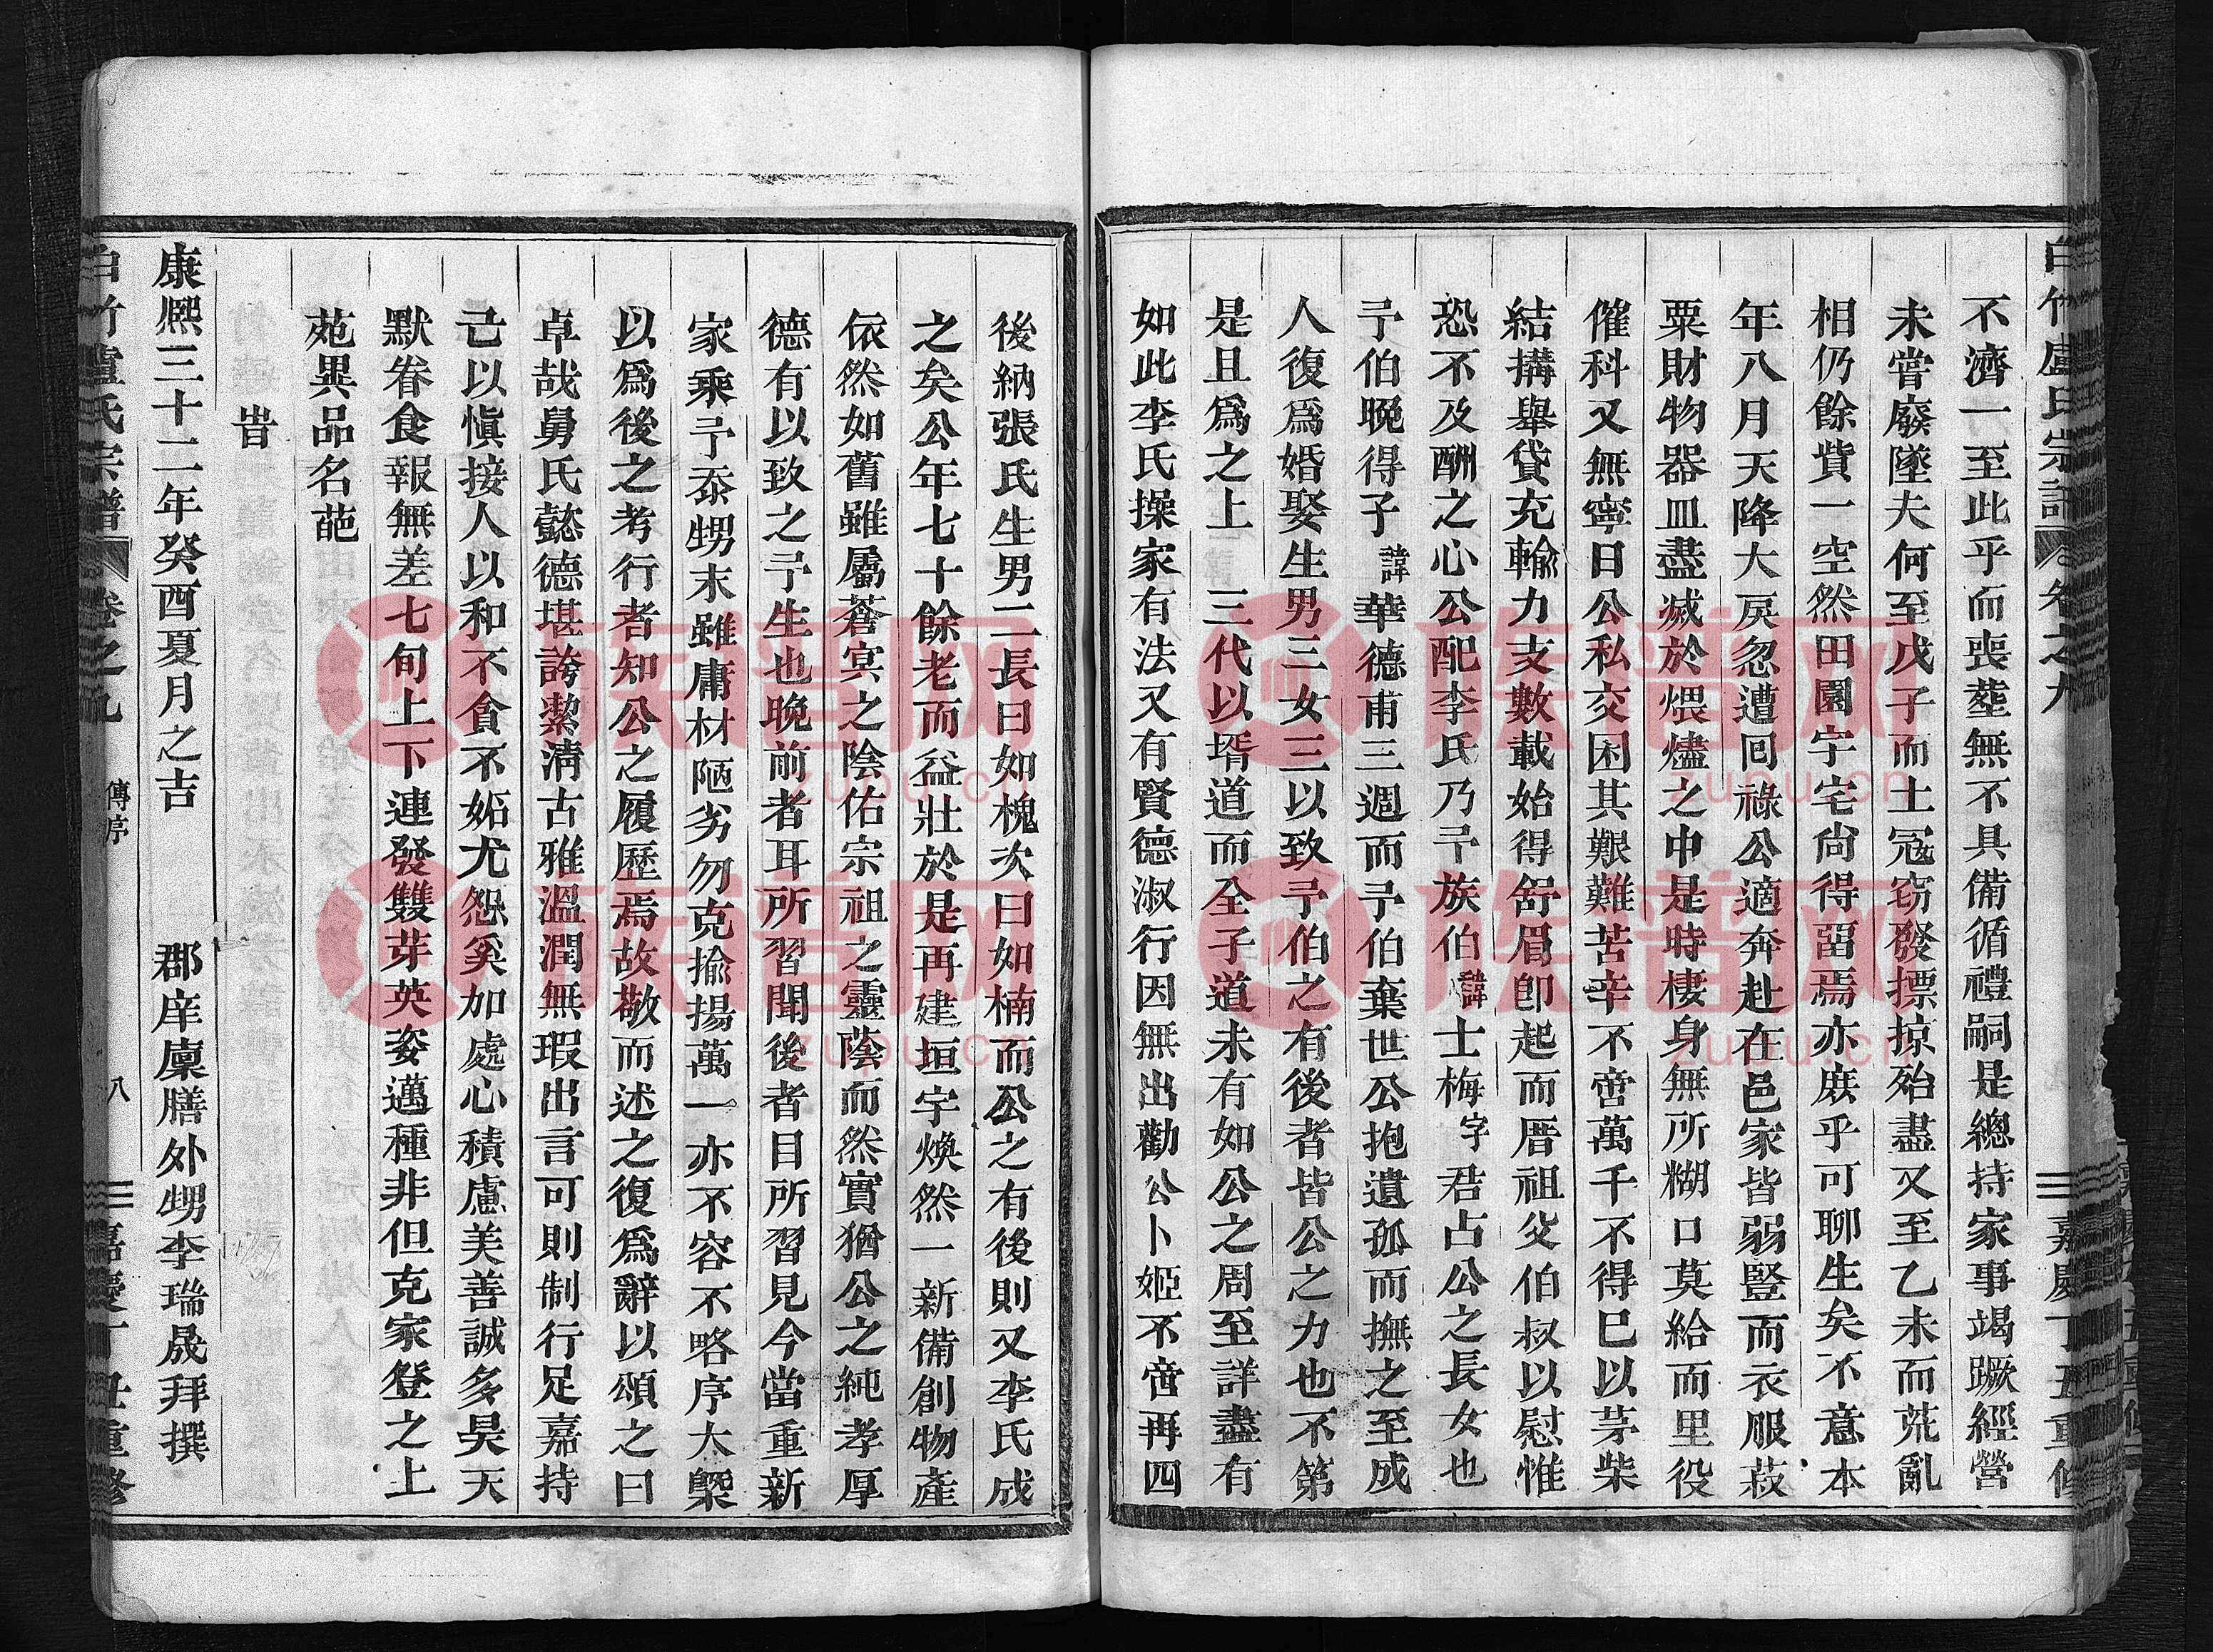 白竹盧氏宗譜 卷之九 嘉慶丁丑重修
不濟一至此乎而喪塟無不具備循禮嗣是總持家事竭蹶經營
未嘗廢墜夫何至戊子而土冦窃發摽掠殆盡又至乙未而荒亂
相仍餘貲一空然田園宇宅尚得畱焉亦庻乎可聊生矣不意本
年八月天降大戾忽遭囘祿公適奔赴在邑家皆弱豎而衣服菽
粟財物器皿盡滅於煨燼之中是時棲身無所糊口莫給而里役
催科又無寧日公私交困其艱難苦辛不啻萬千不得巳以茅柴
結搆舉貸充輸力支數載始得舒眉卽起而厝祖父伯叔以慰惟
恐不及酬之心公配李氏乃予族伯諱士梅字君占公之長女也
予伯晚得子諱華德甫三週而予伯棄世公抱遺孤而撫之至成
人復爲婚娶生男三女三以致予伯之有後者皆公之力也不第
是且爲之上三代以壻道而全子道未有如公之周至詳盡有
如此李氏操家有法又有賢德淑行因無出勸公卜姬不啻再四
後納張氏生男二長曰如槐次曰如楠而公之有後則又李氏成
之矣公年七十餘老而益壯於是再建垣宇煥然一新備創物產
依然如舊雖屬蒼㝠之陰佑宗祖之靈蔭而然實猶公之純孝厚
德有以致之予生也晚前者耳所習聞後者目所習見今當重新
家乘予忝甥末雖庸材陋劣勿克揄揚萬一亦不容不略序大槩
以爲後之考行者知公之履歷焉故敬而述之復爲辭以頌之曰
卓哉舅氏懿德堪誇絜清古雅溫潤無瑕出言可則制行足嘉持
己以慎接人以和不貪不妬尤怨奚加處心積慮美善誠多昊天
默眷食報無差七旬上下連發雙芽英姿邁種非但克家登之上
苑異品名葩
旹
康熈三十二年癸酉夏月之吉 郡庠廩膳外甥李瑞晟拜撰
白竹盧氏宗譜 卷之九 傳序 八 嘉慶丁丑重修
族譜网
zupu.cn
族譜网
zupu.cn
族譜网
zupu.cn
族譜网
zupu.cn